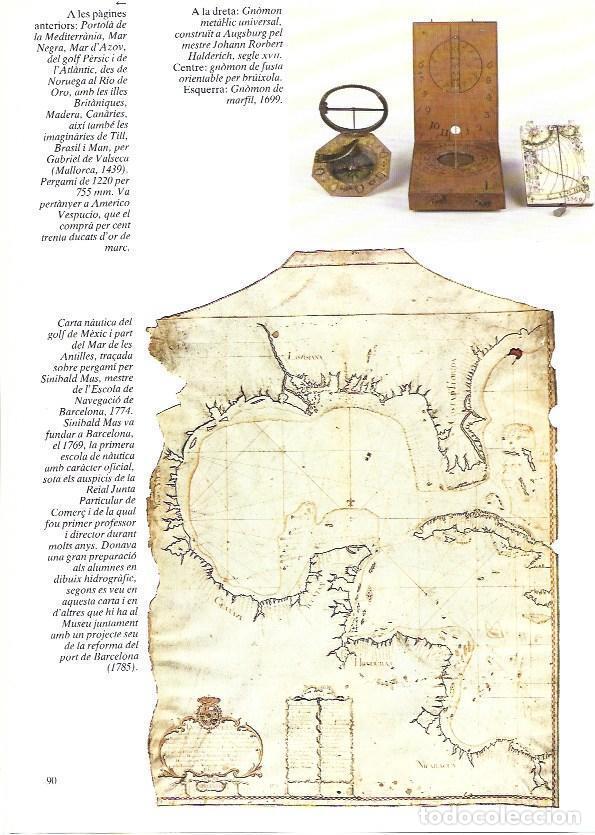 A les pàgines
anteriors: Portolà de
la Mediterrània, Mar
Negra, Mar d'Azov,
del golf Pèrsic i de
l'Atlàntic, des de
Noruega al Río de
Oro, amb les illes
Britàniques,
Madera, Canàries,
així també les
imaginàries de Till,
Brasil i Man, per
Gabriel de Valseca
(Mallorca, 1439).
Pergamí de 1220 per
755 mm. Va
pertànyer a Americo
Vespucio, que el
comprà per cent
trenta ducats d'or de
marc.
A la dreta: Gnòmon
metàl·lic universal,
construït a Augsburg pel
mestre Johann Rorbert
Halderich, segle XVII.
Centre: gnòmon de fusta
orientable per brúixola.
Esquerra: Gnòmon de
marfil, 1699.
Carta nàutica del
golf de Mèxic i part
del Mar de les
Antilles, traçada
sobre pergamí per
Sinibald Mas, mestre
de l'Escola de
Navegació de
Barcelona, 1774.
Sinibald Mas va
fundar a Barcelona,
el 1769, la primera
escola de nàutica
amb caràcter oficial,
sota els auspicis de la
Reial Junta
Particular de
Comerç i de la qual
fou primer professor
i director durant
molts anys. Donava
una gran preparació
als alumnes en
dibuix hidrogràfic,
segons es veu en
aquesta carta i en
d'altres que hi ha al
Museu juntament
amb un projecte seu
de la reforma del
port de Barcelona
(1785).
HONDURAS
NICARAGUA
90
todocoleccion